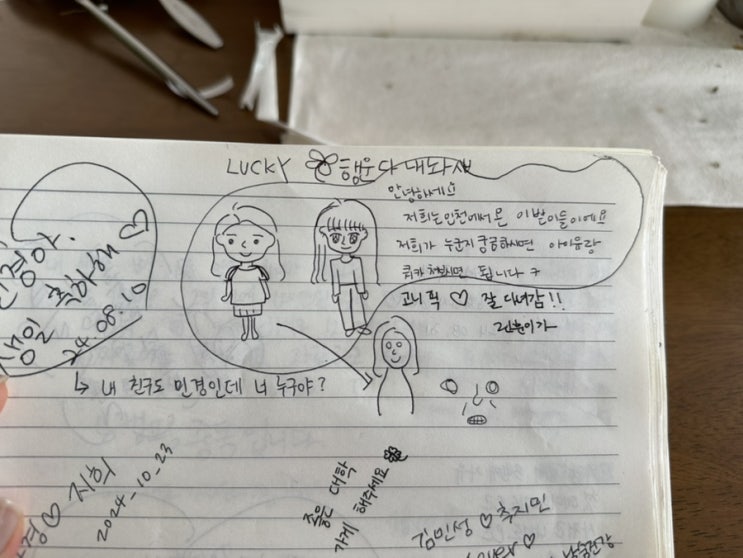 LUCKY 행운 다 내놔 새
안녕하세요
저희는 인천에서 온 이 벌이들이에요
저희가 누군지 궁금하시면 아이유랑
치시면 됩니다 ㅋ
고니 픽 ♡ 잘 다녀감!!
생일 축하해 ♡
24.08.10
↳ 내 친구도 민경인데 너 누구야?
♡ 지희
2024-10-23
좋은 대학
가게 해주세요
김민성 ♡ 추지민